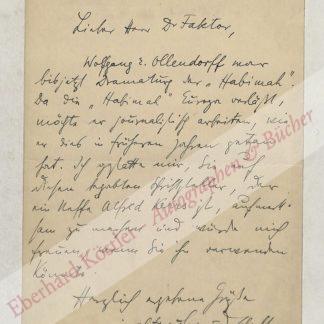 Lieber Herr Dr Faktor,
Wolfgang E. Ollendorff war
bis jetzt Dramaturg der „Habimah".
Da die „Habimah" Europa verläßt,
möchte er journalistisch arbeiten, wie
er dies in früheren Jahren getan
hat. Ich gestatte mir, Sie auf
diesen begabten Schriftsteller, der
ein Neffe Alfred ist, aufmerk-
sam zu machen und würde mich
freuen, wenn Sie ihn verwenden
könnten.
Herzlich ergebene Grüße
Eberhard Köstler - Autographen & Bücher